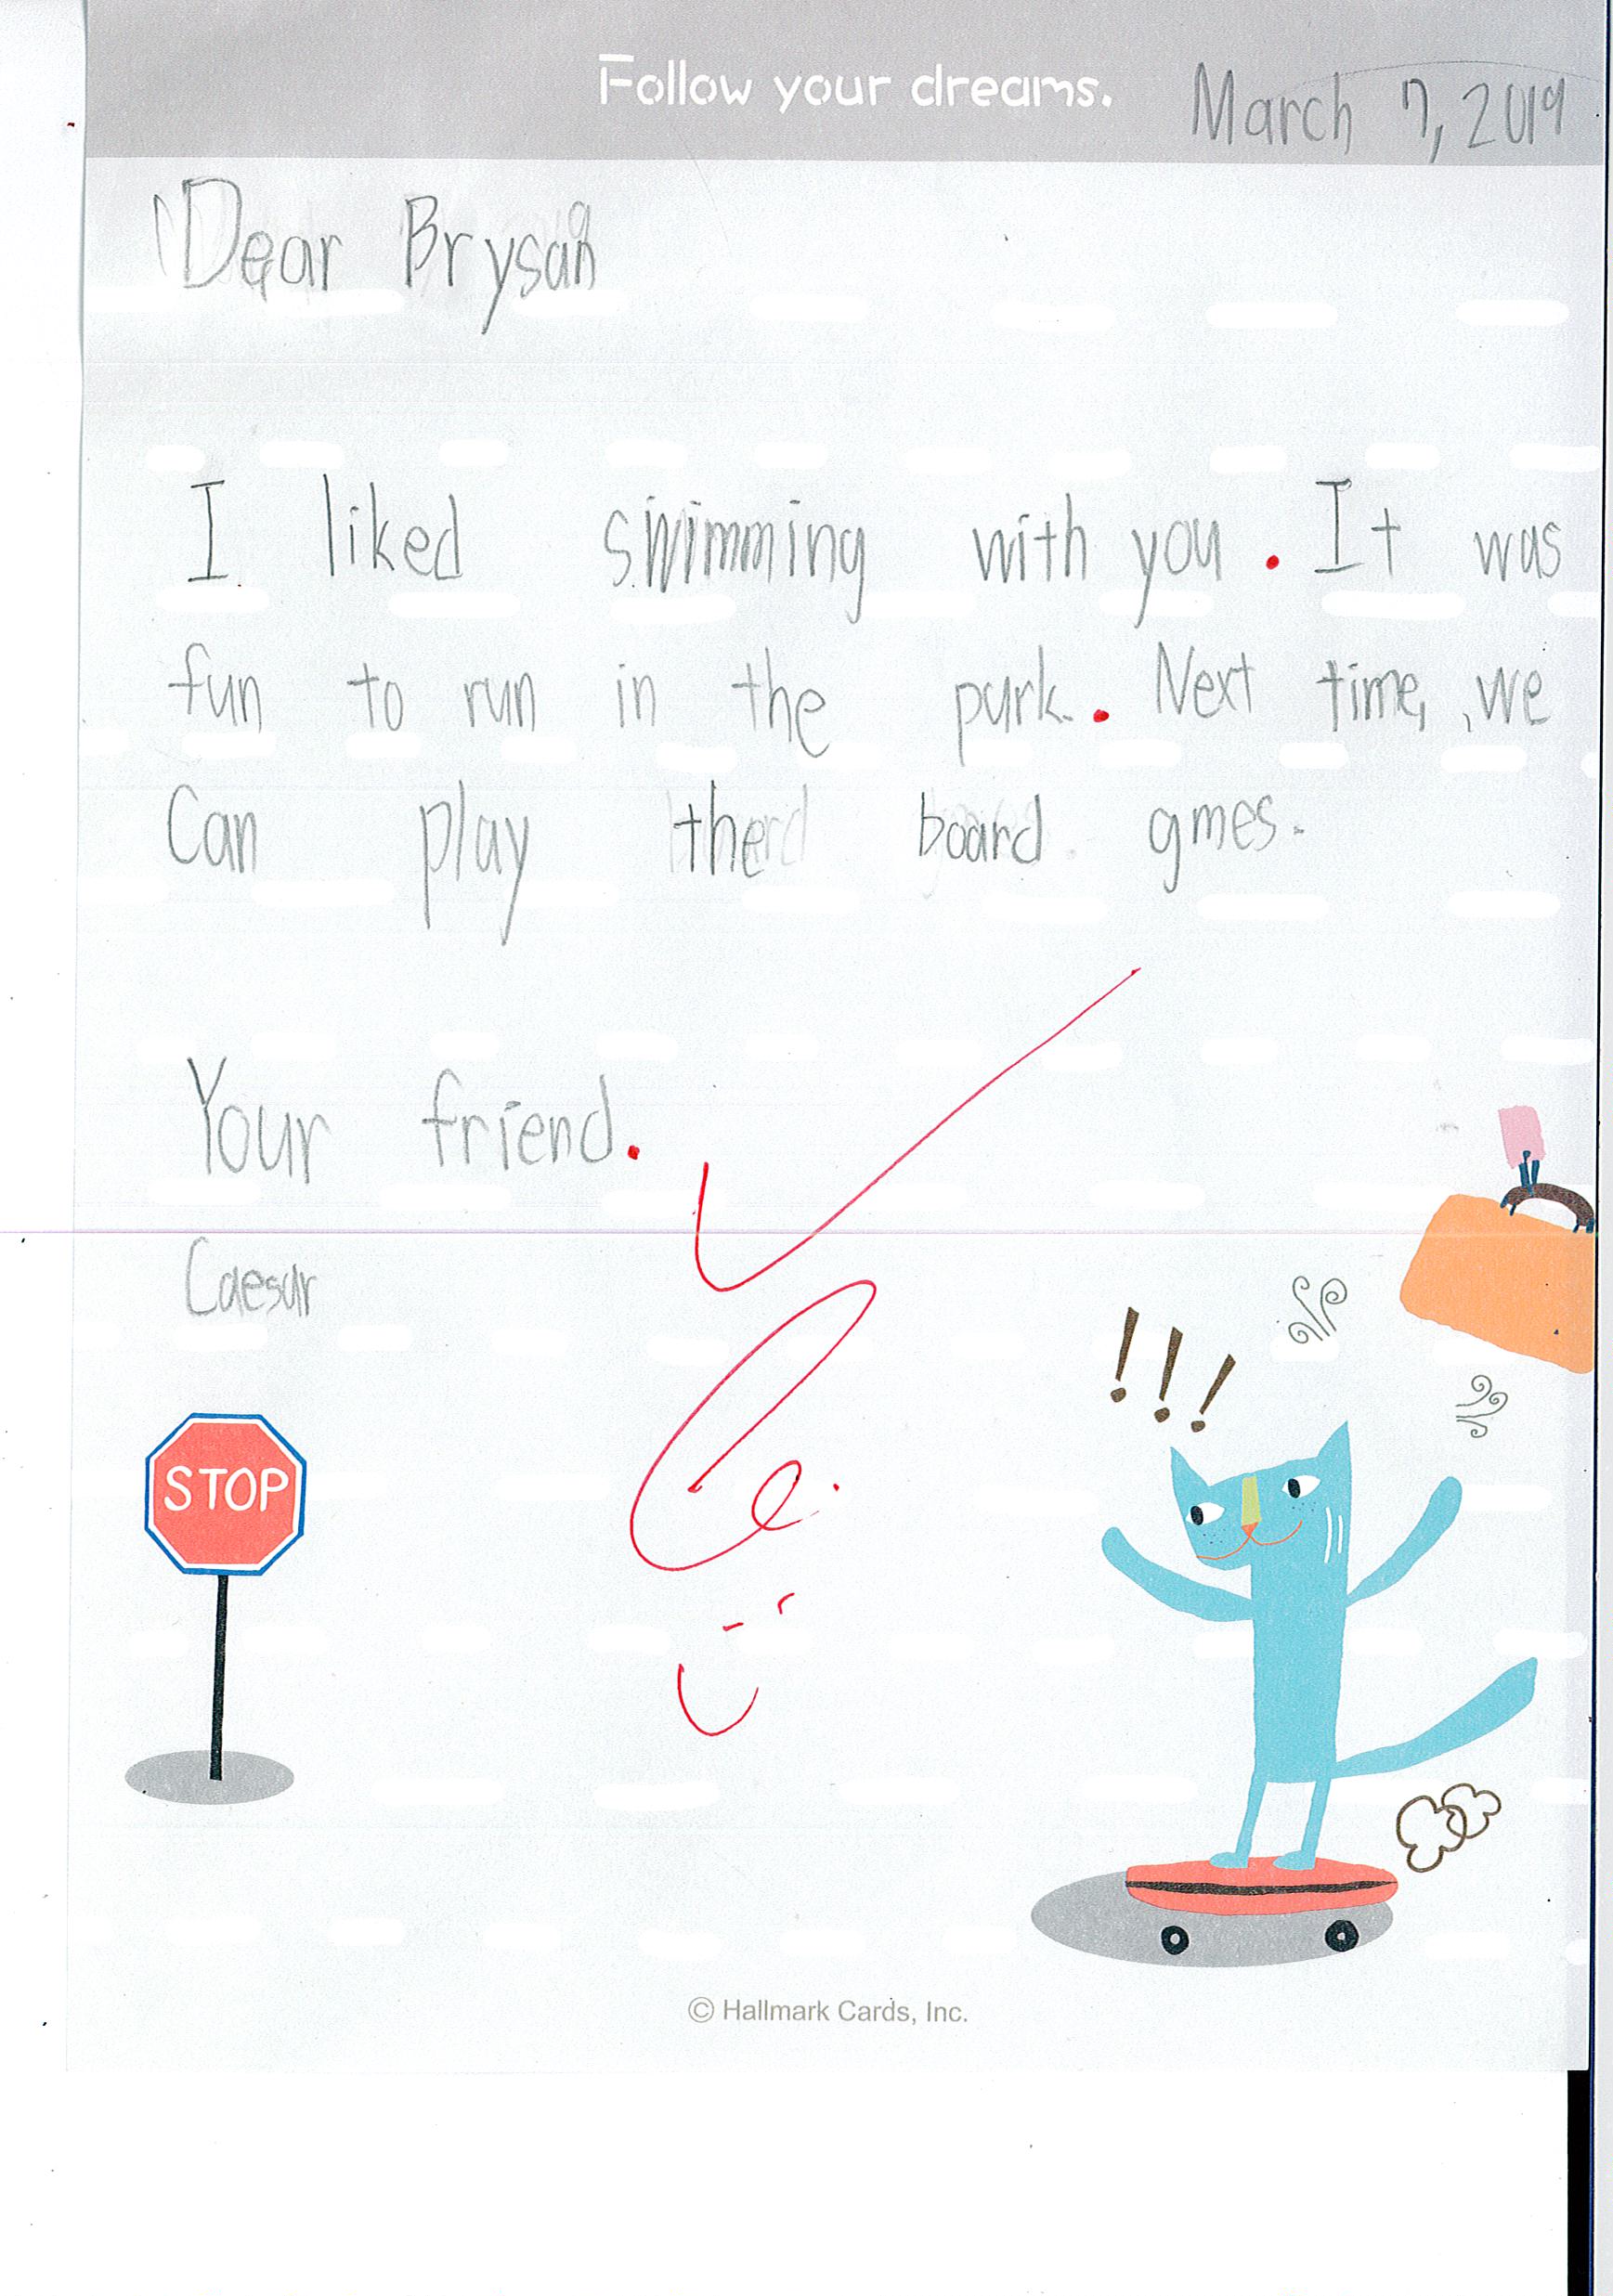 Follow your dreams.
March 7, 2019
Dear Brysan
I liked swimming with you. It was
fun to run in the purk. Next time, we
Can play the board gmes.
Your friend.
Caesar
STOP
!!!
© Hallmark Cards, Inc.